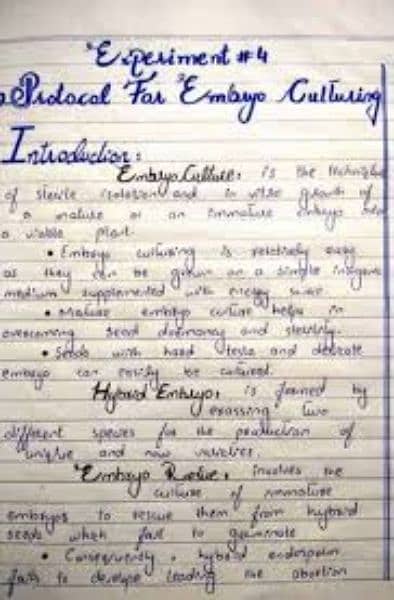 Experiment #4
Protocol For Embryo Culturing
Introduction:
Embryo Culture: is the technique
of sterile isolation and in vitro growth of
a mature or an immature embryo into
a viable plant.
• Embryo culturing is relatively easy
as they can be grown on a simple inorganic
medium supplemented with energy source.
• Mature embryo culture helps in
overcoming seed dormancy and sterility.
• Seeds with hard testa and delicate
embryo can easily be cultured.
Hybrid Embryo: is formed by
crossing two
different species for the production of
unique and new varieties.
Embryo Rescue: involves the
culture of immature
embryos to rescue them from hybrid
seeds which fail to germinate
• Consequently, hybrid endosperm
fails to develop leading the abortion